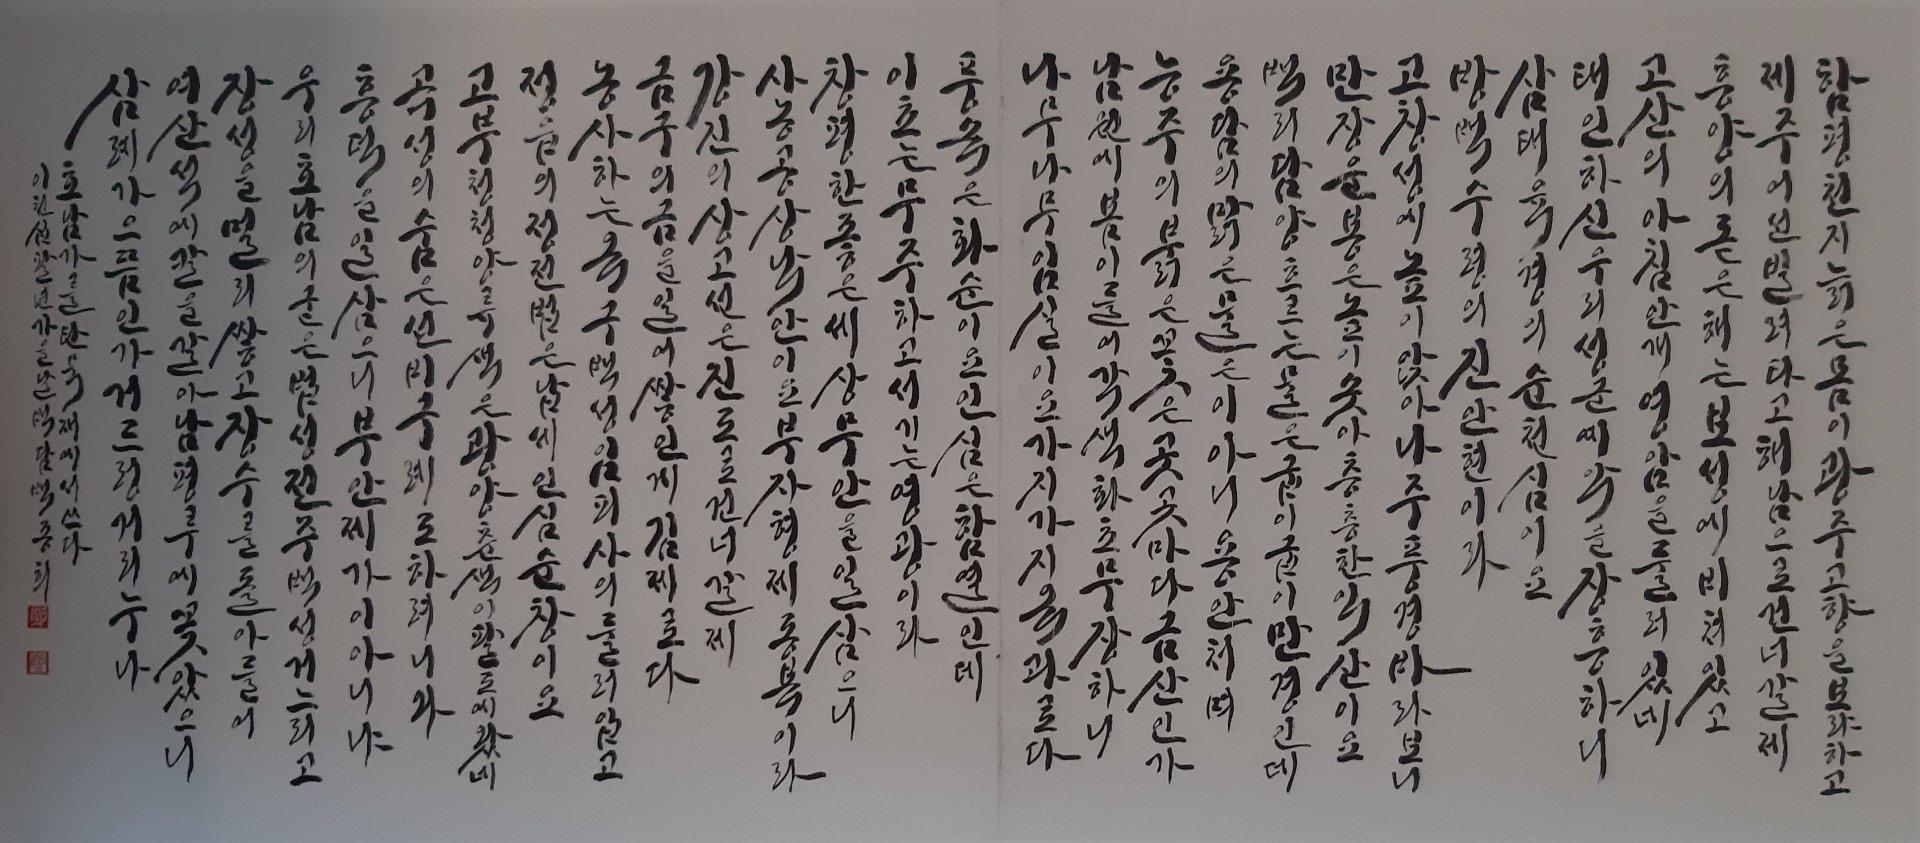 함평천지늙은몸이광주고향을보랴하고
제주어선빌려타고해남으로건너갈제
흥양의돋은해는보성에비쳐있고
고산의아침안개영암을둘러있네
태인하신우리성군예악을장흥하니
삼태육경의순천심이요
방백수령의진안현이라
고창성에높이앉아나주풍경바라보니
만장운봉은높이솟아층층한익산이요
백리담양흐르는물은굽이굽이만경인데
용담의맑은물은이아니용안처며
능주의붉은꽃은곳곳마다금산인가
남원에봄이들어각색화초무장하니
나무나무임실이요가지가지옥과로다
풍속은화순이요인심은함열인데
이초는무주하고서기는영광이라
창평한좋은세상무안을일삼으니
사농공상낙안이요부자형제동복이라
강진의상고선은진도로건너갈제
금구의금을일어쌓인게김제로다
농사하는옥구백성임피사의둘러입고
정읍의정전법은납세인심순창이요
고부청청양류색은광양춘색이팔도에왔네
곡성의숨은선비구례도하려니와
흥덕을일삼으니부안제가이아니냐
우리호남의굳은법성전주백성거느리고
장성을멀리쌓고장수를돌아들어
여산석에칼을갈아남평루에꽂았으니
삼례가으뜸인가거드렁거리누나
호남가를탄묵재에서쓰다
이천십팔년가을날백담백종희